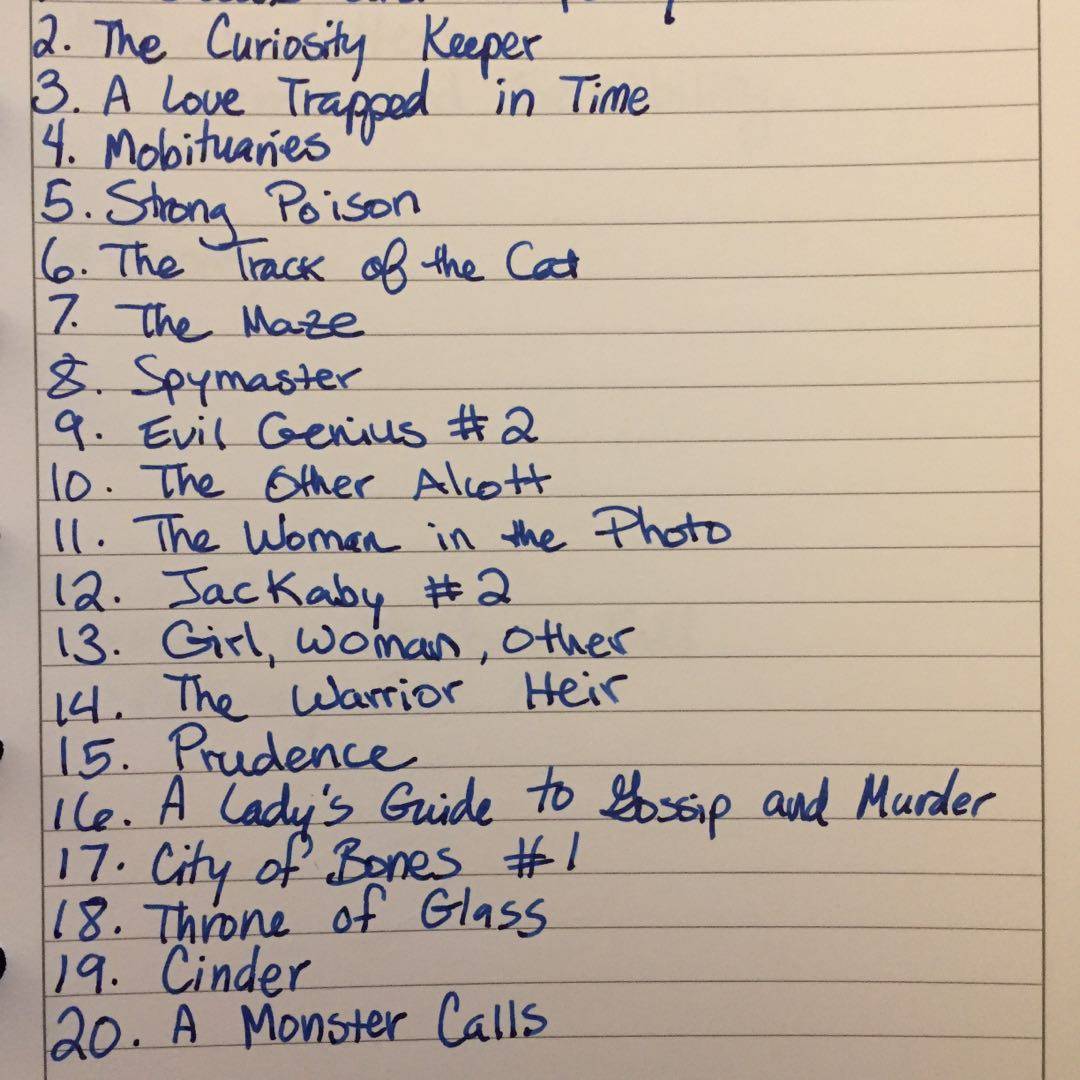 2. The Curiosity Keeper
3. A Love Trapped in Time
4. Mobituaries
5. Strong Poison
6. The Track of the Cat
7. The Maze
8. Spymaster
9. Evil Genius #2
10. The Other Alcott
11. The Woman in the Photo
12. Jackaby #2
13. Girl, Woman, Other
14. The Warrior Heir
15. Prudence
16. A Lady's Guide to Gossip and Murder
17. City of Bones #1
18. Throne of Glass
19. Cinder
20. A Monster Calls